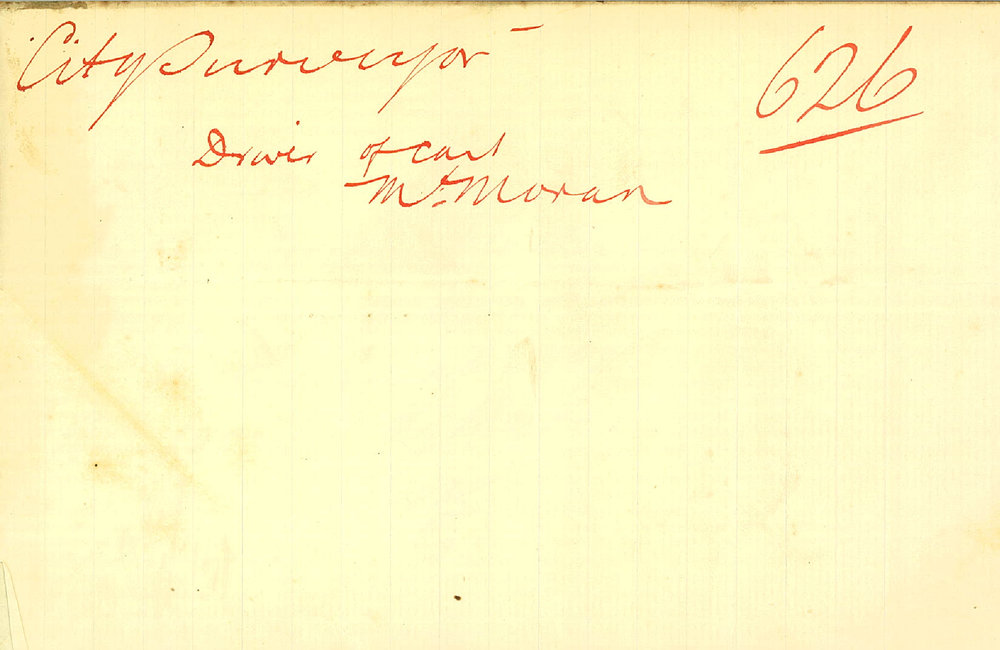 City Surveyor -
626
Driver of cart
Mr. Moran